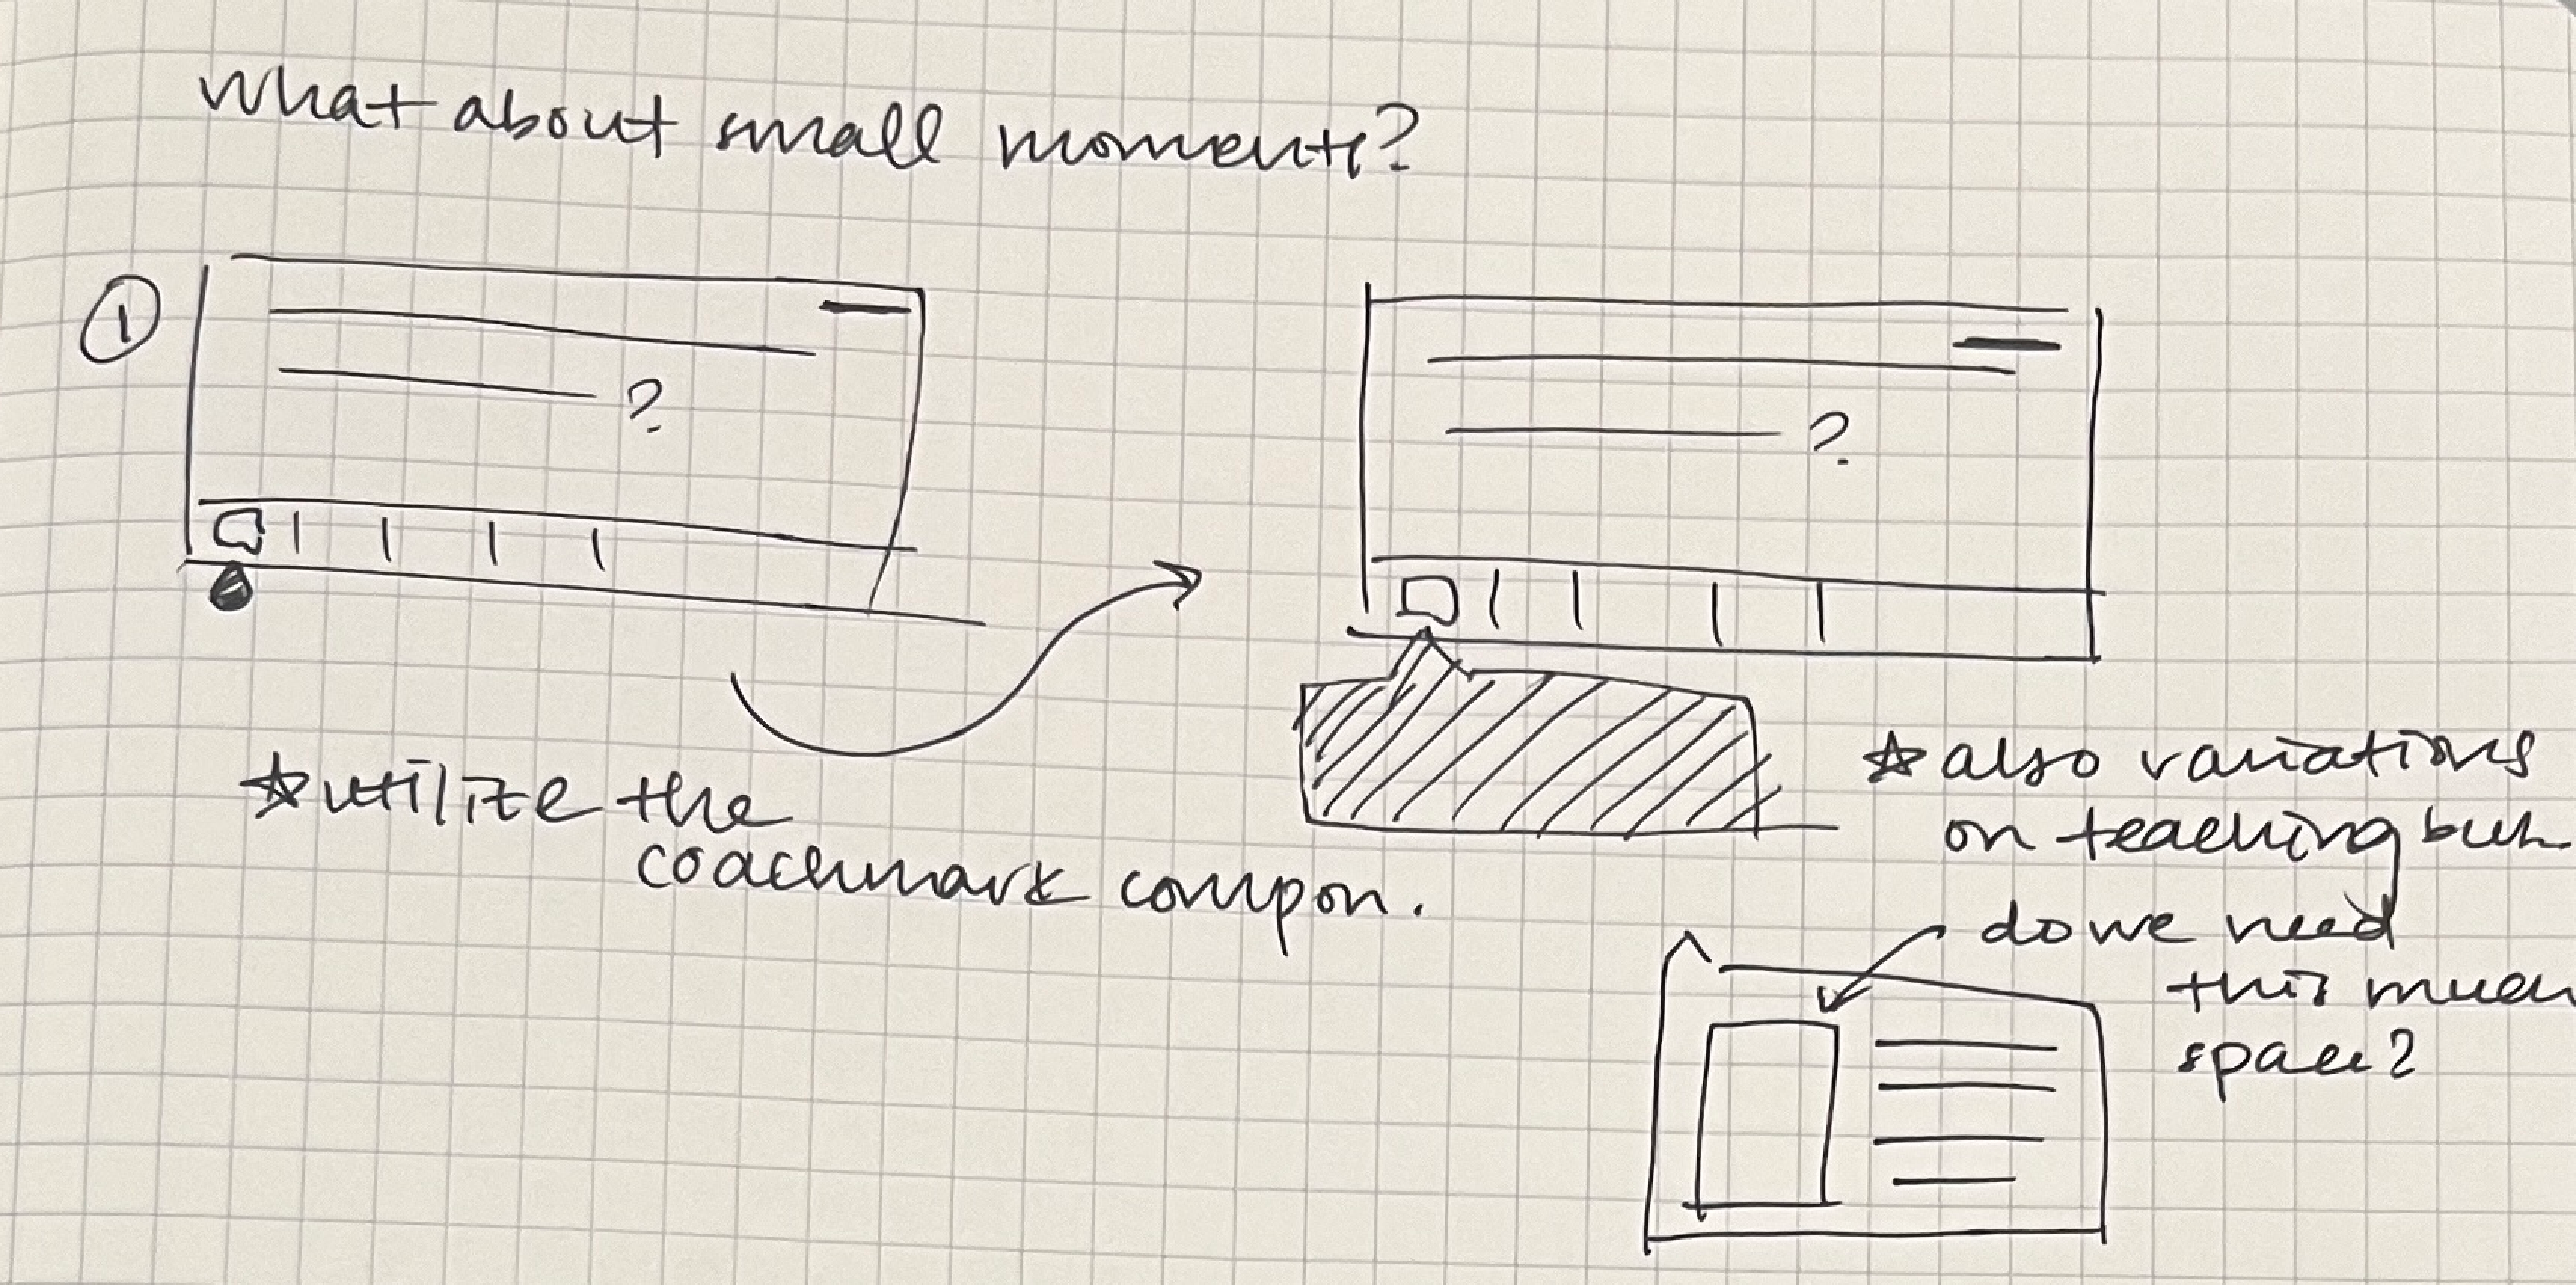 What about small moments?
1
?
?
☆ utilize the
coachmark compon.
☆ also variations
on teaching but
do we need
this much
space?